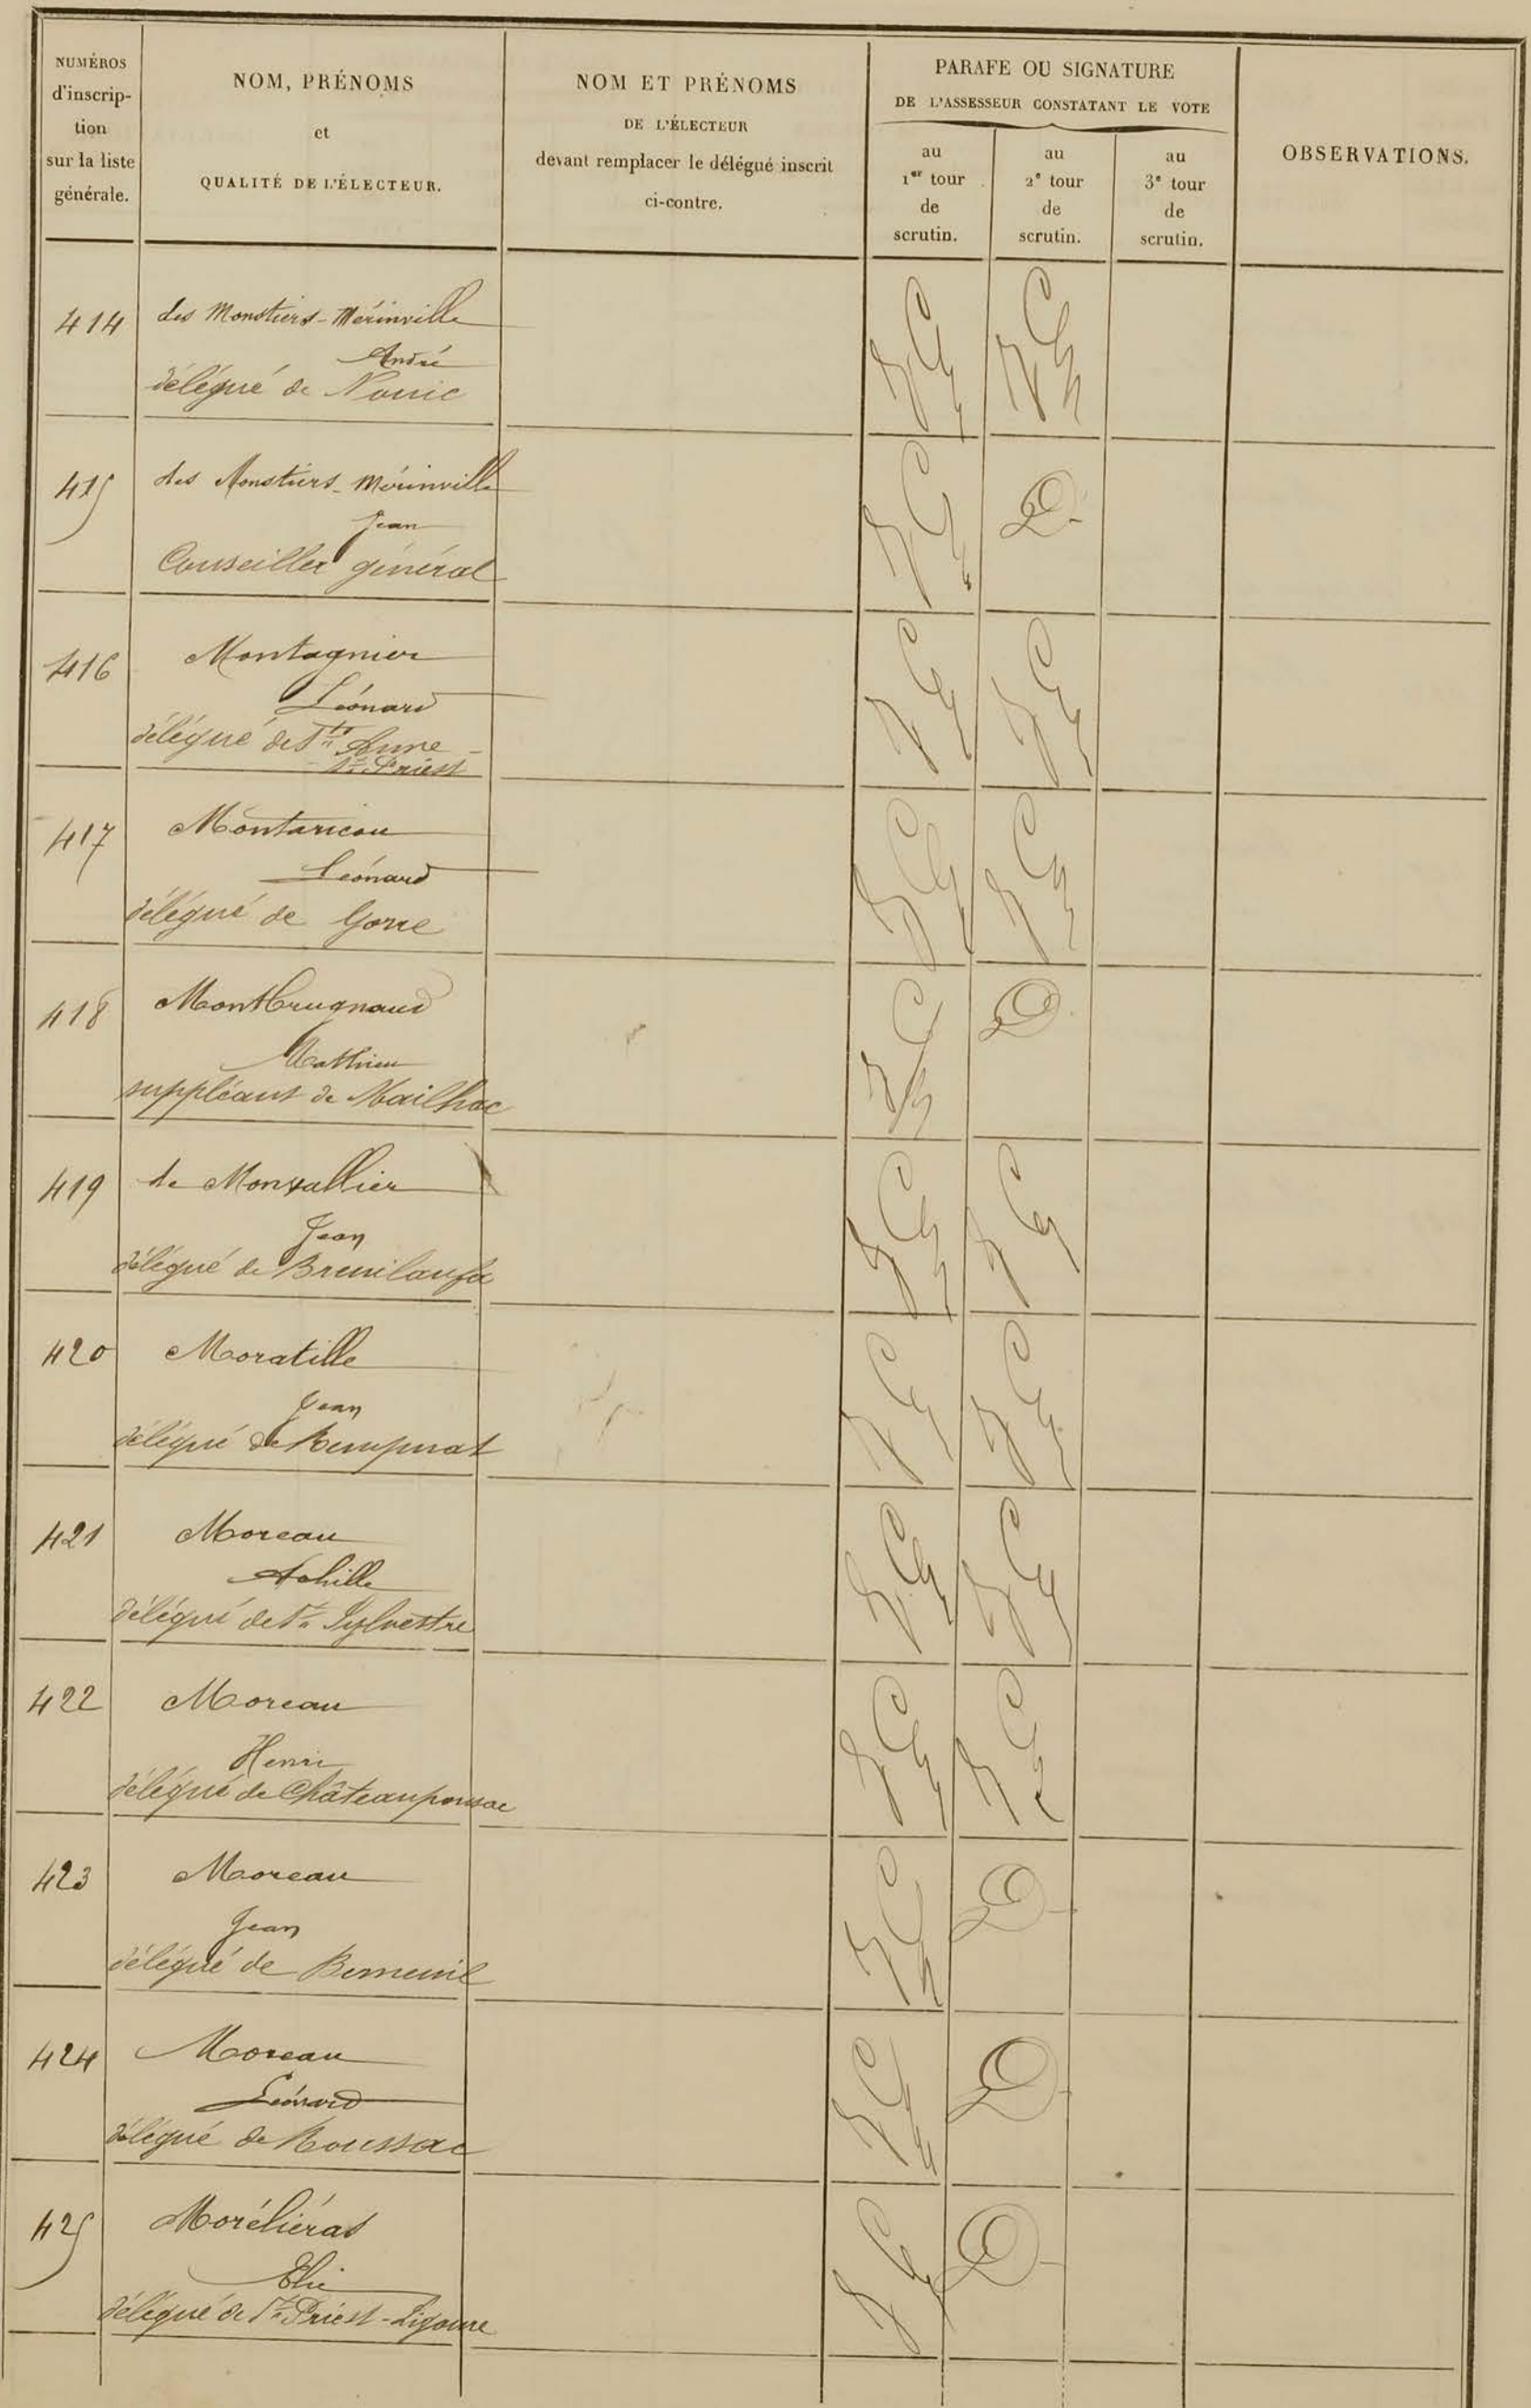 NUMÉROS
d'inscrip-
tion
sur la liste
générale.
NOM, PRÉNOMS
et
QUALITÉ DE L'ÉLECTEUR.
NOM ET PRÉNOMS
DE L'ÉLECTEUR
devant remplacer le délégué inscrit
ci-contre.
PARAFE OU SIGNATURE
DE L'ASSESSEUR CONSTATANT LE VOTE
au
1er tour
de
scrutin.
au
2e tour
de
scrutin.
au
3e tour
de
scrutin.
OBSERVATIONS.
414 des Monstiers-Mérinville
André
délégué de Nouic
415 des Monstiers-Mérinville
Jean
Conseiller général
416 Montagnier
Léonard
délégué de Ste Anne -
St Priest
417 Montaricou
Léonard
délégué de Gorre
418 Montbrugnaud
Mathieu
suppléant de Mailhac
419 de Monvallier
Jean
délégué de Breuilaufa
420 Moratille
Jean
délégué de Rempnat
421 Moreau
Achille
délégué de St Sylvestre
422 Moreau
Henri
délégué de Châteauponsac
423 Moreau
Jean
délégué de Berneuil
424 Moreau
Léonard
délégué de Roussac
425 Moréliéras
Elie
délégué de St Priest-Ligoure